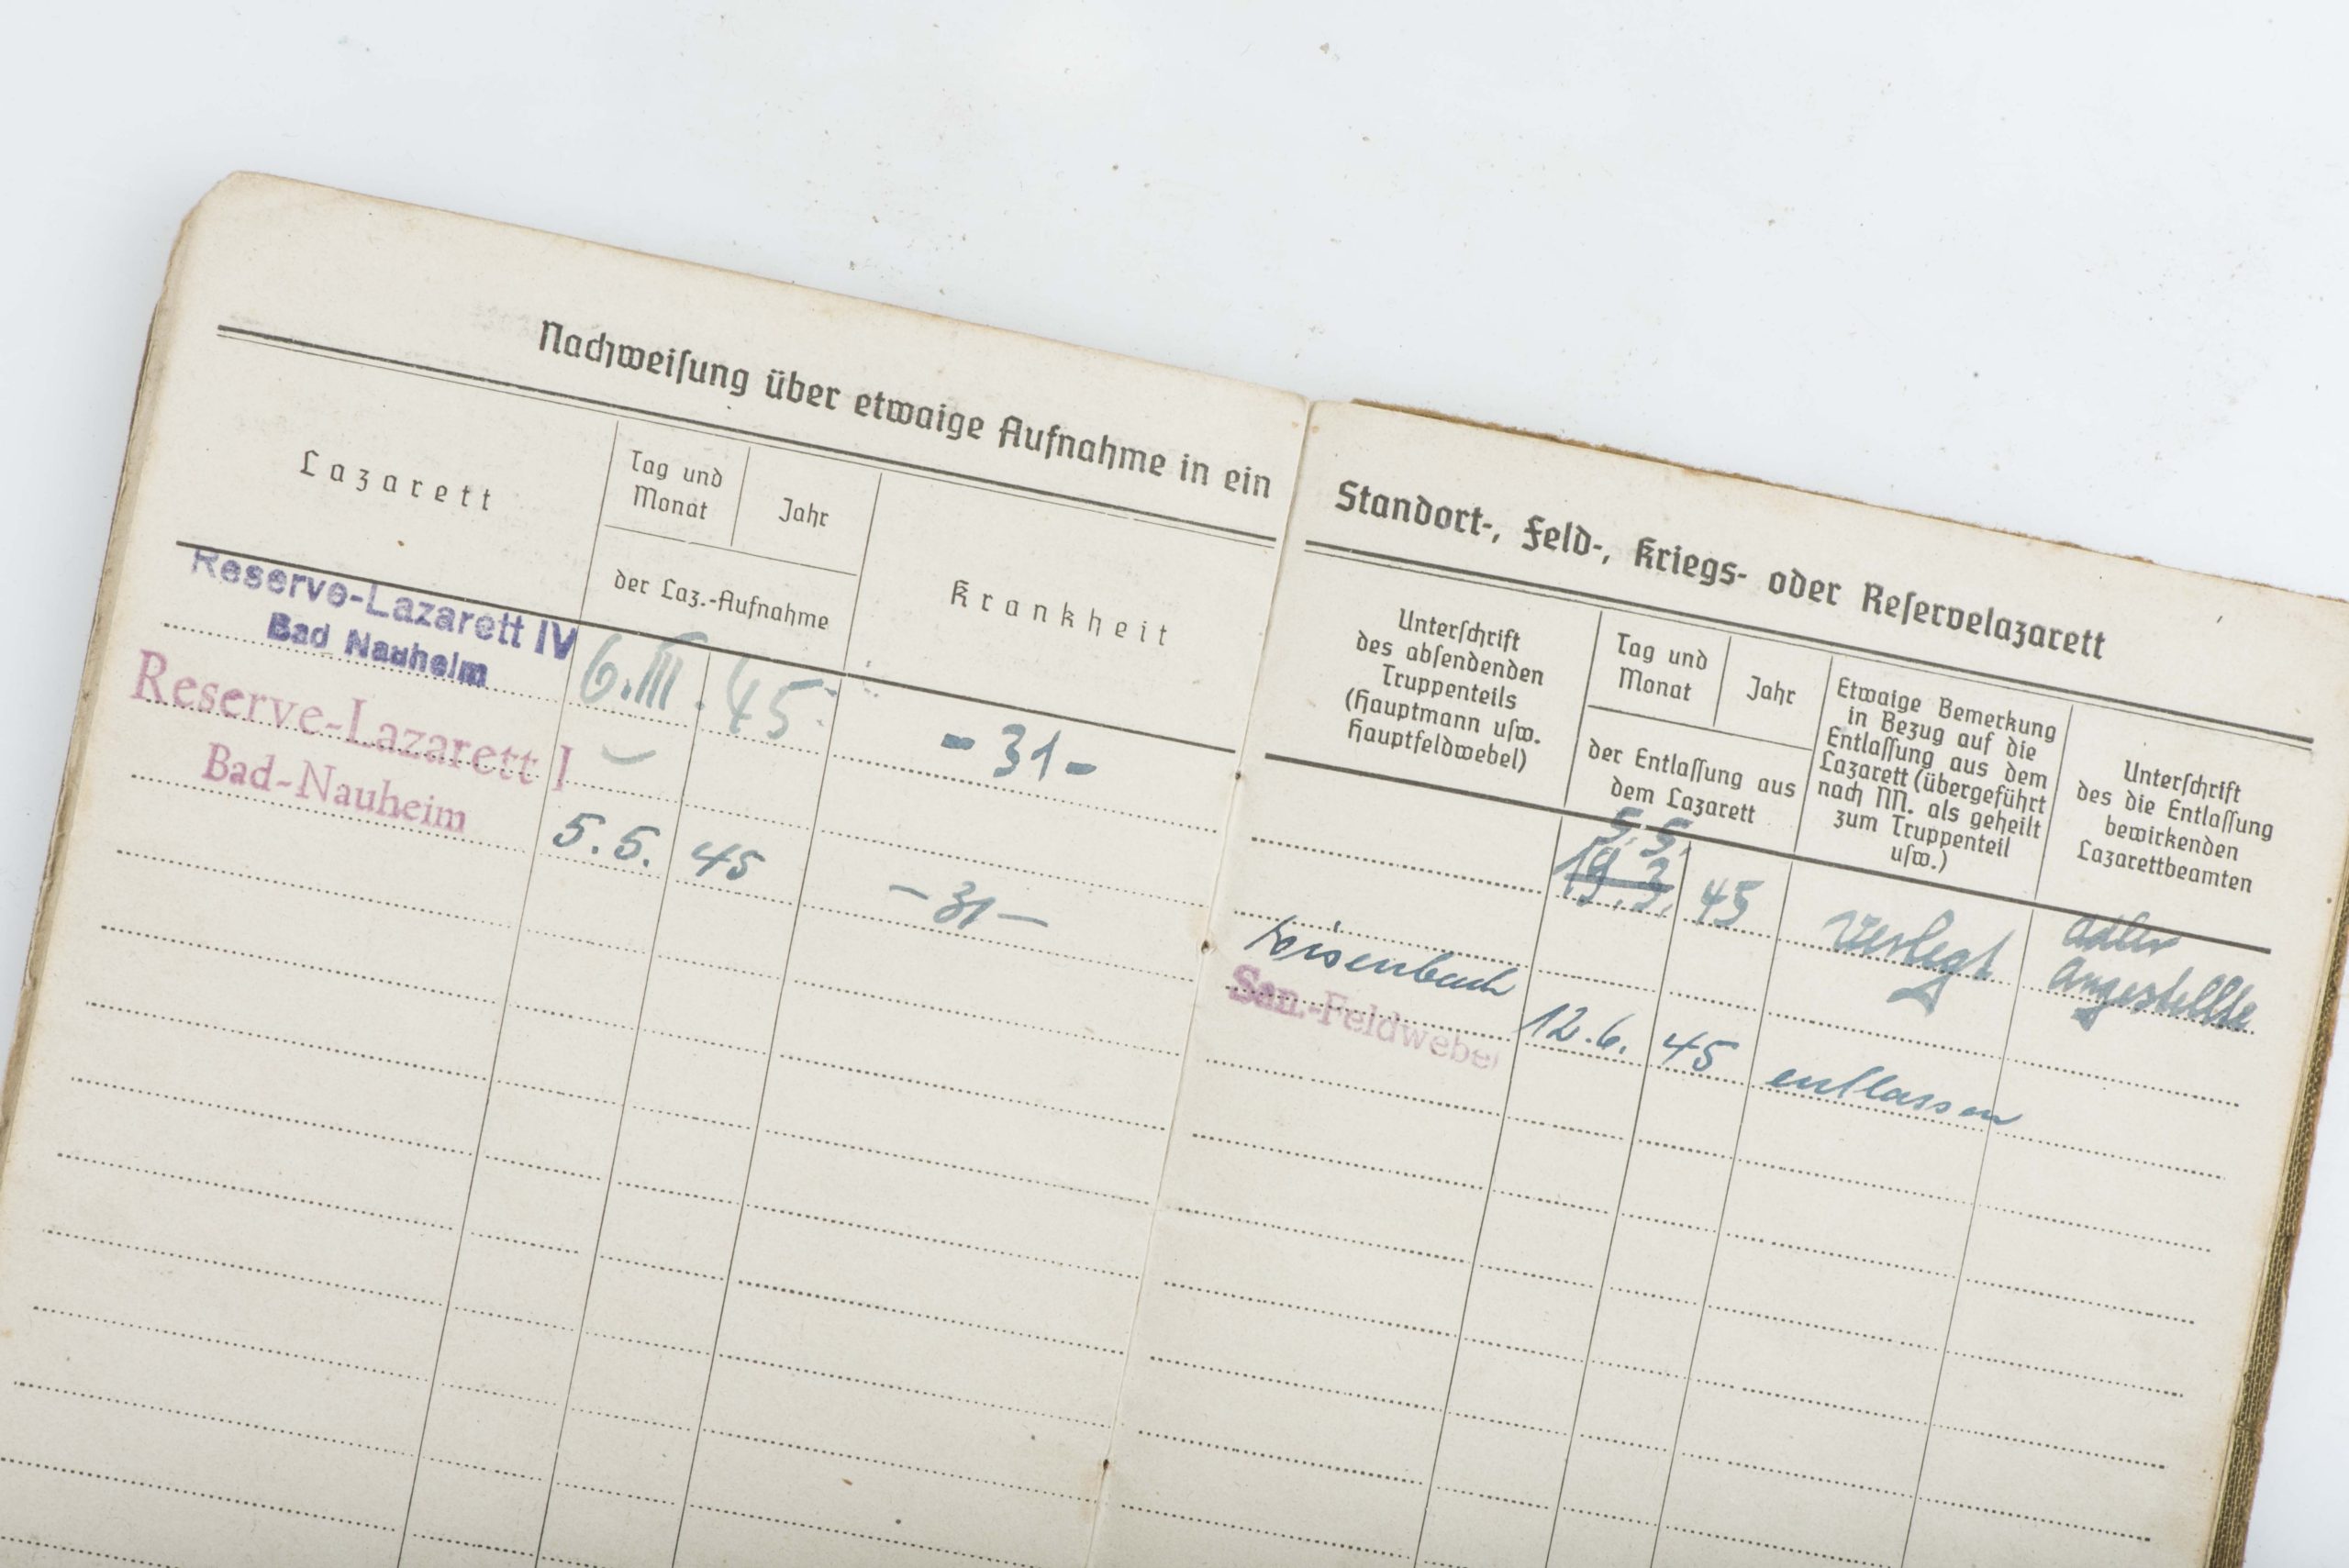 Nachweisung über etwaige Aufnahme in ein
Lazarett
Tag und
Monat
Jahr
der Laz.-Aufnahme
Krankheit
Reserve-Lazarett IV
Bad Nauheim
6.III.
45
- 31 -
Reserve-Lazarett I
Bad-Nauheim
5.5.
45
- 31 -
Standort-, Feld-, Kriegs- oder Reservelazarett
Unterschrift
des absendenden
Truppenteils
(Hauptmann usw.
Hauptfeldwebel)
Tag und
Monat
Jahr
der Entlassung aus
dem Lazarett
Etwaige Bemerkung
in Bezug auf die
Entlassung aus dem
Lazarett (übergeführt
nach NN. als geheilt
zum Truppenteil
usw.)
Unterschrift
des die Entlassung
bewirkenden
Lazarettbeamten
5.5.
19.3.
45
verlegt
Adler
Angestellte
Weisenbach
San.-Feldwebel
12.6.
45
entlassen